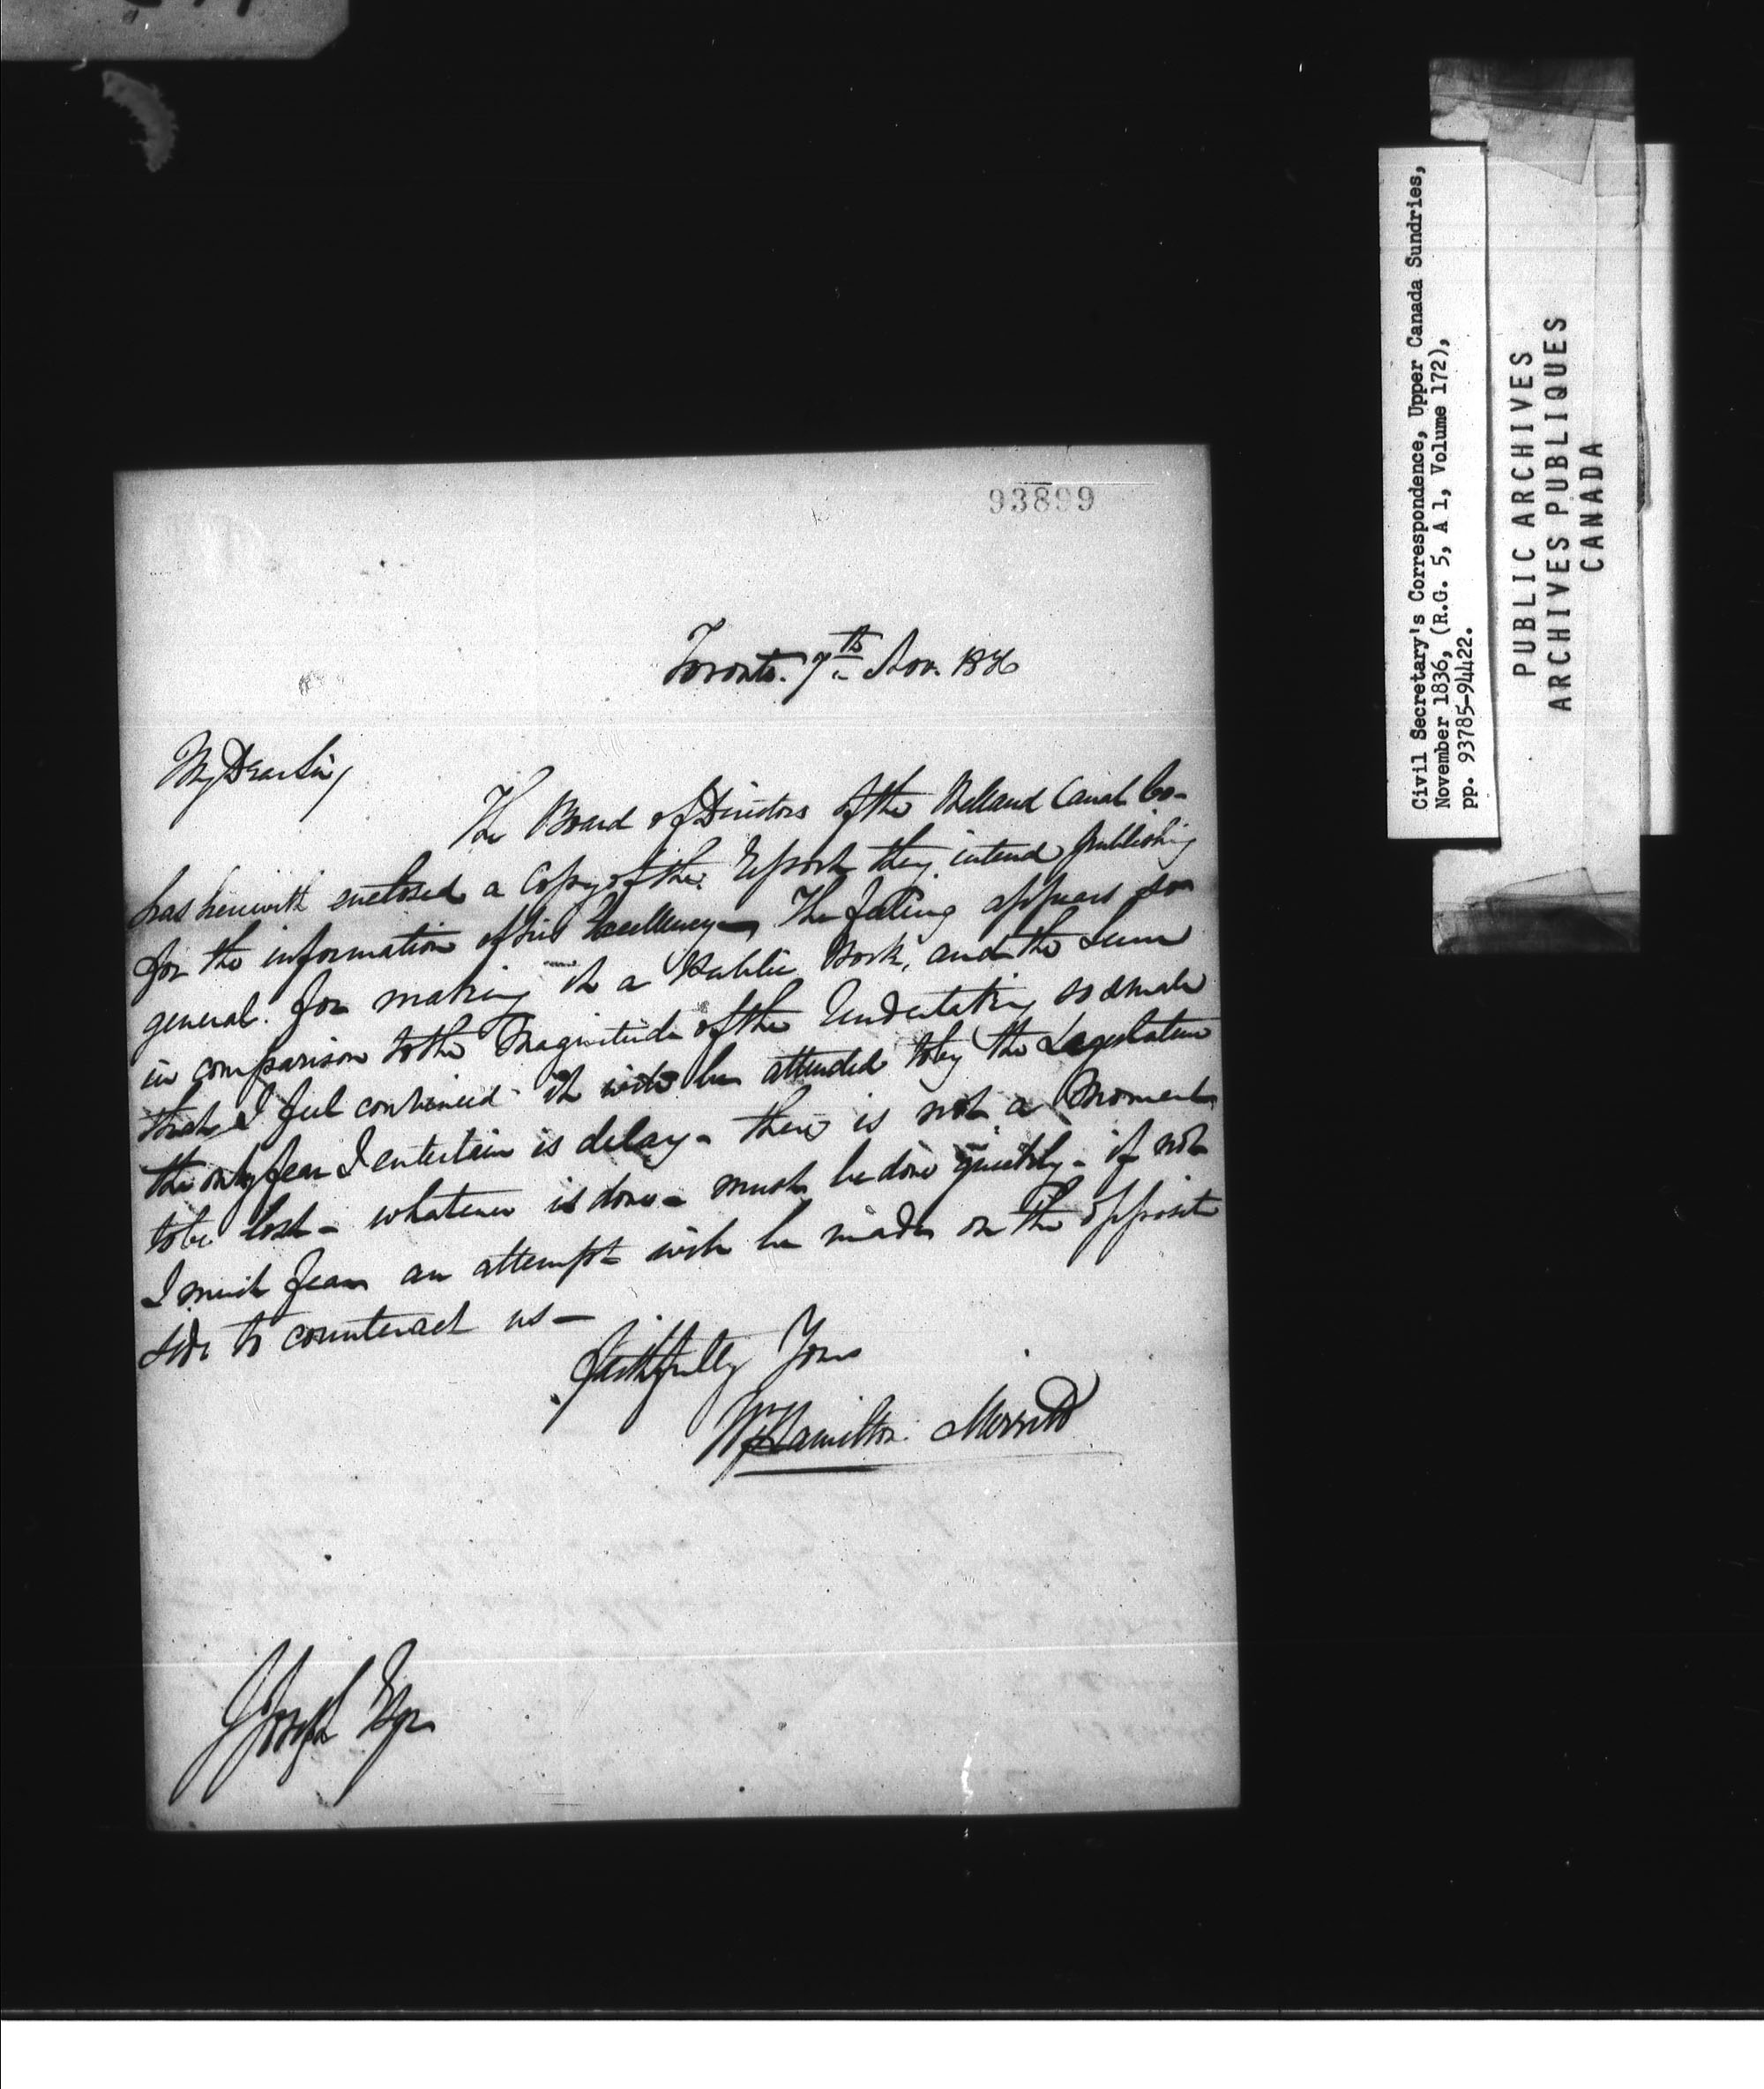 93899
Toronto. 7th Nov. 1836
My Dear Sir,
The Board of Directors of the Welland Canal Co-
has herewith enclosed a Copy of the Report they intend publishing
for the information of his Excellency - The feeling appears so
general. for making it a Public Work, and the Sum
in comparison to the Magnitude of the Undertaking so small
that I feel convinced it will be attended to by the Legislature
the only fear I entertain is delay - there is not a Moment
to be lost - whatever is done - must be done quickly - if not
I much fear an attempt will be made on the opposite
side to counteract us -
Faithfully Yours
Wm Hamilton Merritt
J Joseph Esqr
Civil Secretary's Correspondence, Upper Canada Sundries,
November 1836, (R.G. 5, A 1, Volume 172),
pp. 93785-94422.
PUBLIC ARCHIVES
ARCHIVES PUBLIQUES
CANADA